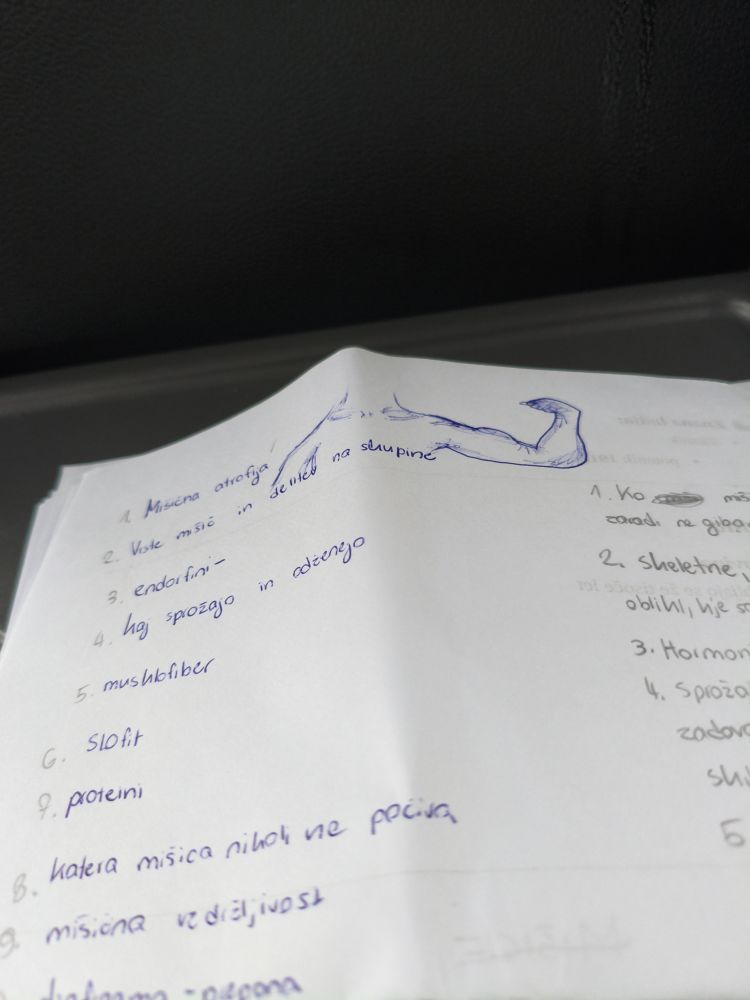 1. Mišična atrofija
2. Vrste mišic in delitev na skupine
3. endorfini-
4. kaj sprožajo in odženejo
5. mushlofiber
6. SLOfit
7. proteini
8. katera mišica nikoli ne počiva
9. mišična vzdržljivost
diafragma - prepona
1. Ko miš
zaradi ne giba
2. Skeletne,
obliki, kje so
3. Hormon
4. Sproža
zadovo
ski
5